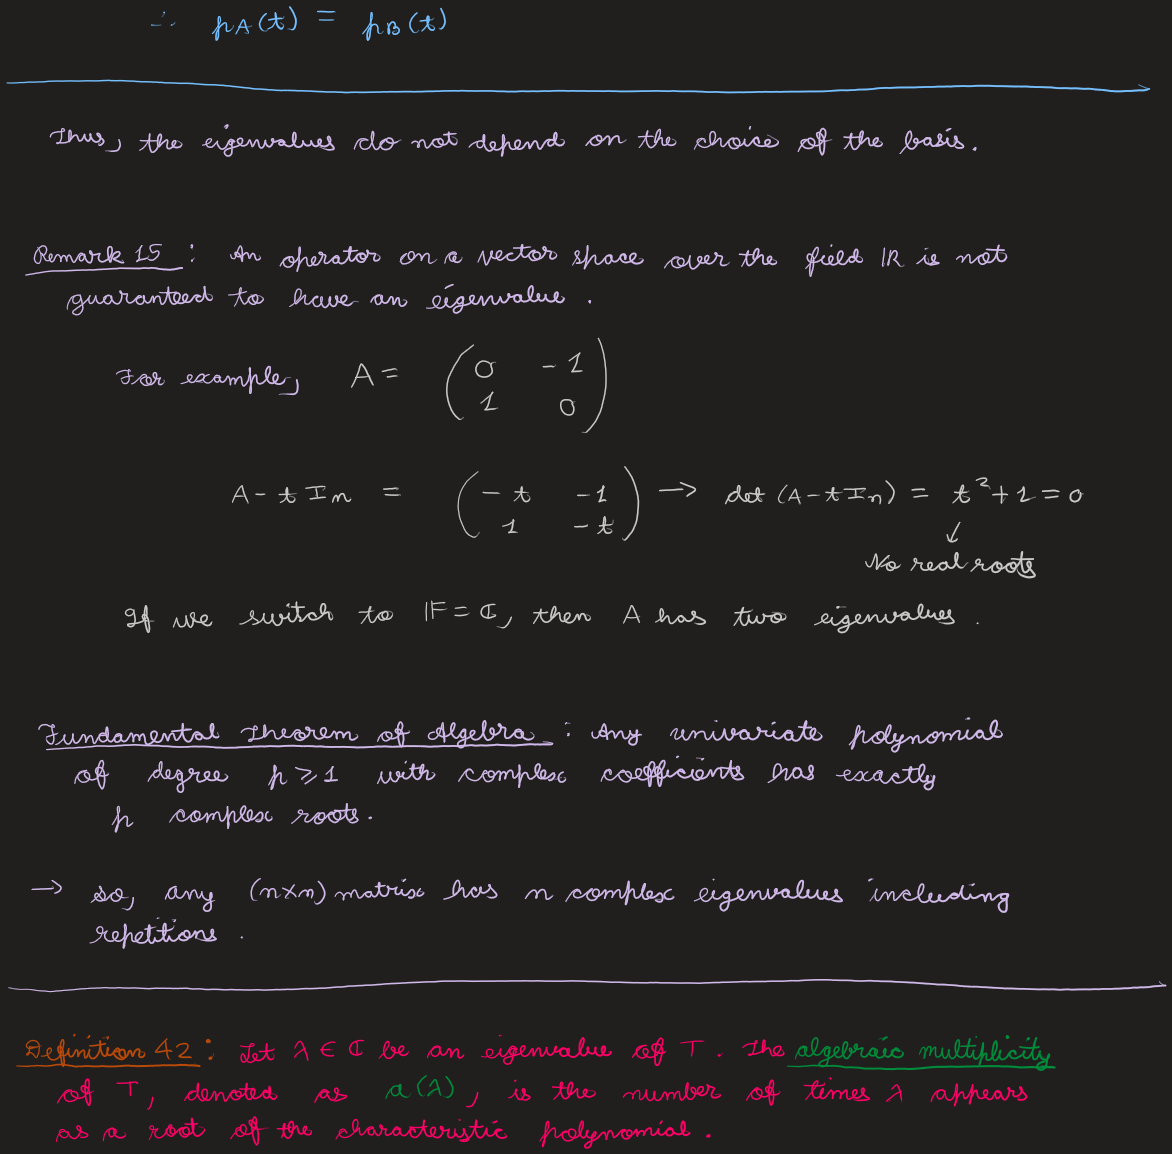 ∴ pA(t) = pB(t)
Thus, the eigenvalues do not depend on the choice of the basis.
Remark 15 : An operator on a vector space over the field ℝ is not
guaranteed to have an eigenvalue .
For example, A = ( 0 -1
1 0 )
A - t In = ( - t -1 → det (A - t In) = t² + 1 = 0
1 - t ) ↓
No real roots
If we switch to 𝔽 = ℂ, then A has two eigenvalues .
Fundamental Theorem of Algebra : Any univariate polynomial
of degree p ⩾ 1 with complex coefficients has exactly
p complex roots .
→ so, any (n×n) matrix has n complex eigenvalues including
repetitions .
Definition 42 : Let λ ∈ ℂ be an eigenvalue of T . The algebraic multiplicity
of T, denoted as a(λ), is the number of times λ appears
as a root of the characteristic polynomial .